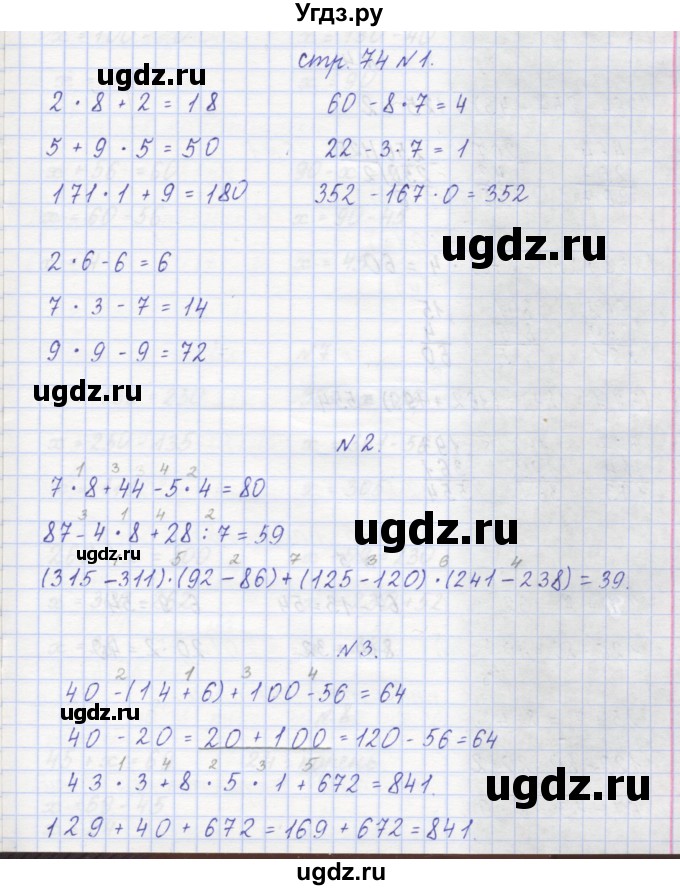 Угдз.ру
стр. 74 № 1.
ugdz.ru
2 · 8 + 2 = 18    60 - 8 · 7 = 4
5 + 9 · 5 = 50    22 - 3 · 7 = 1
171 · 1 + 9 = 180    352 - 167 · 0 = 352
ugdz.ru
2 · 6 - 6 = 6
7 · 3 - 7 = 14
9 · 9 - 9 = 72
ugdz.ru
№ 2.
1 3 4 2
7 · 8 + 44 - 5 · 4 = 80
3 1 4 2
87 - 4 · 8 + 28 : 7 = 59
ugdz.ru
ugdz.ru
1 5 2 7 3 6 4
(315 - 311) · (92 - 86) + (125 - 120) · (241 - 238) = 39.
№ 3.
2 1 3 4
40 - (14 + 6) + 100 - 56 = 64
ugdz.ru
40 - 20 = 20 + 100 = 120 - 56 = 64
ugdz.ru
1 4 2 3 5
43 · 3 + 8 · 5 · 1 + 672 = 841.
129 + 40 + 672 = 169 + 672 = 841.
ugdz.ru